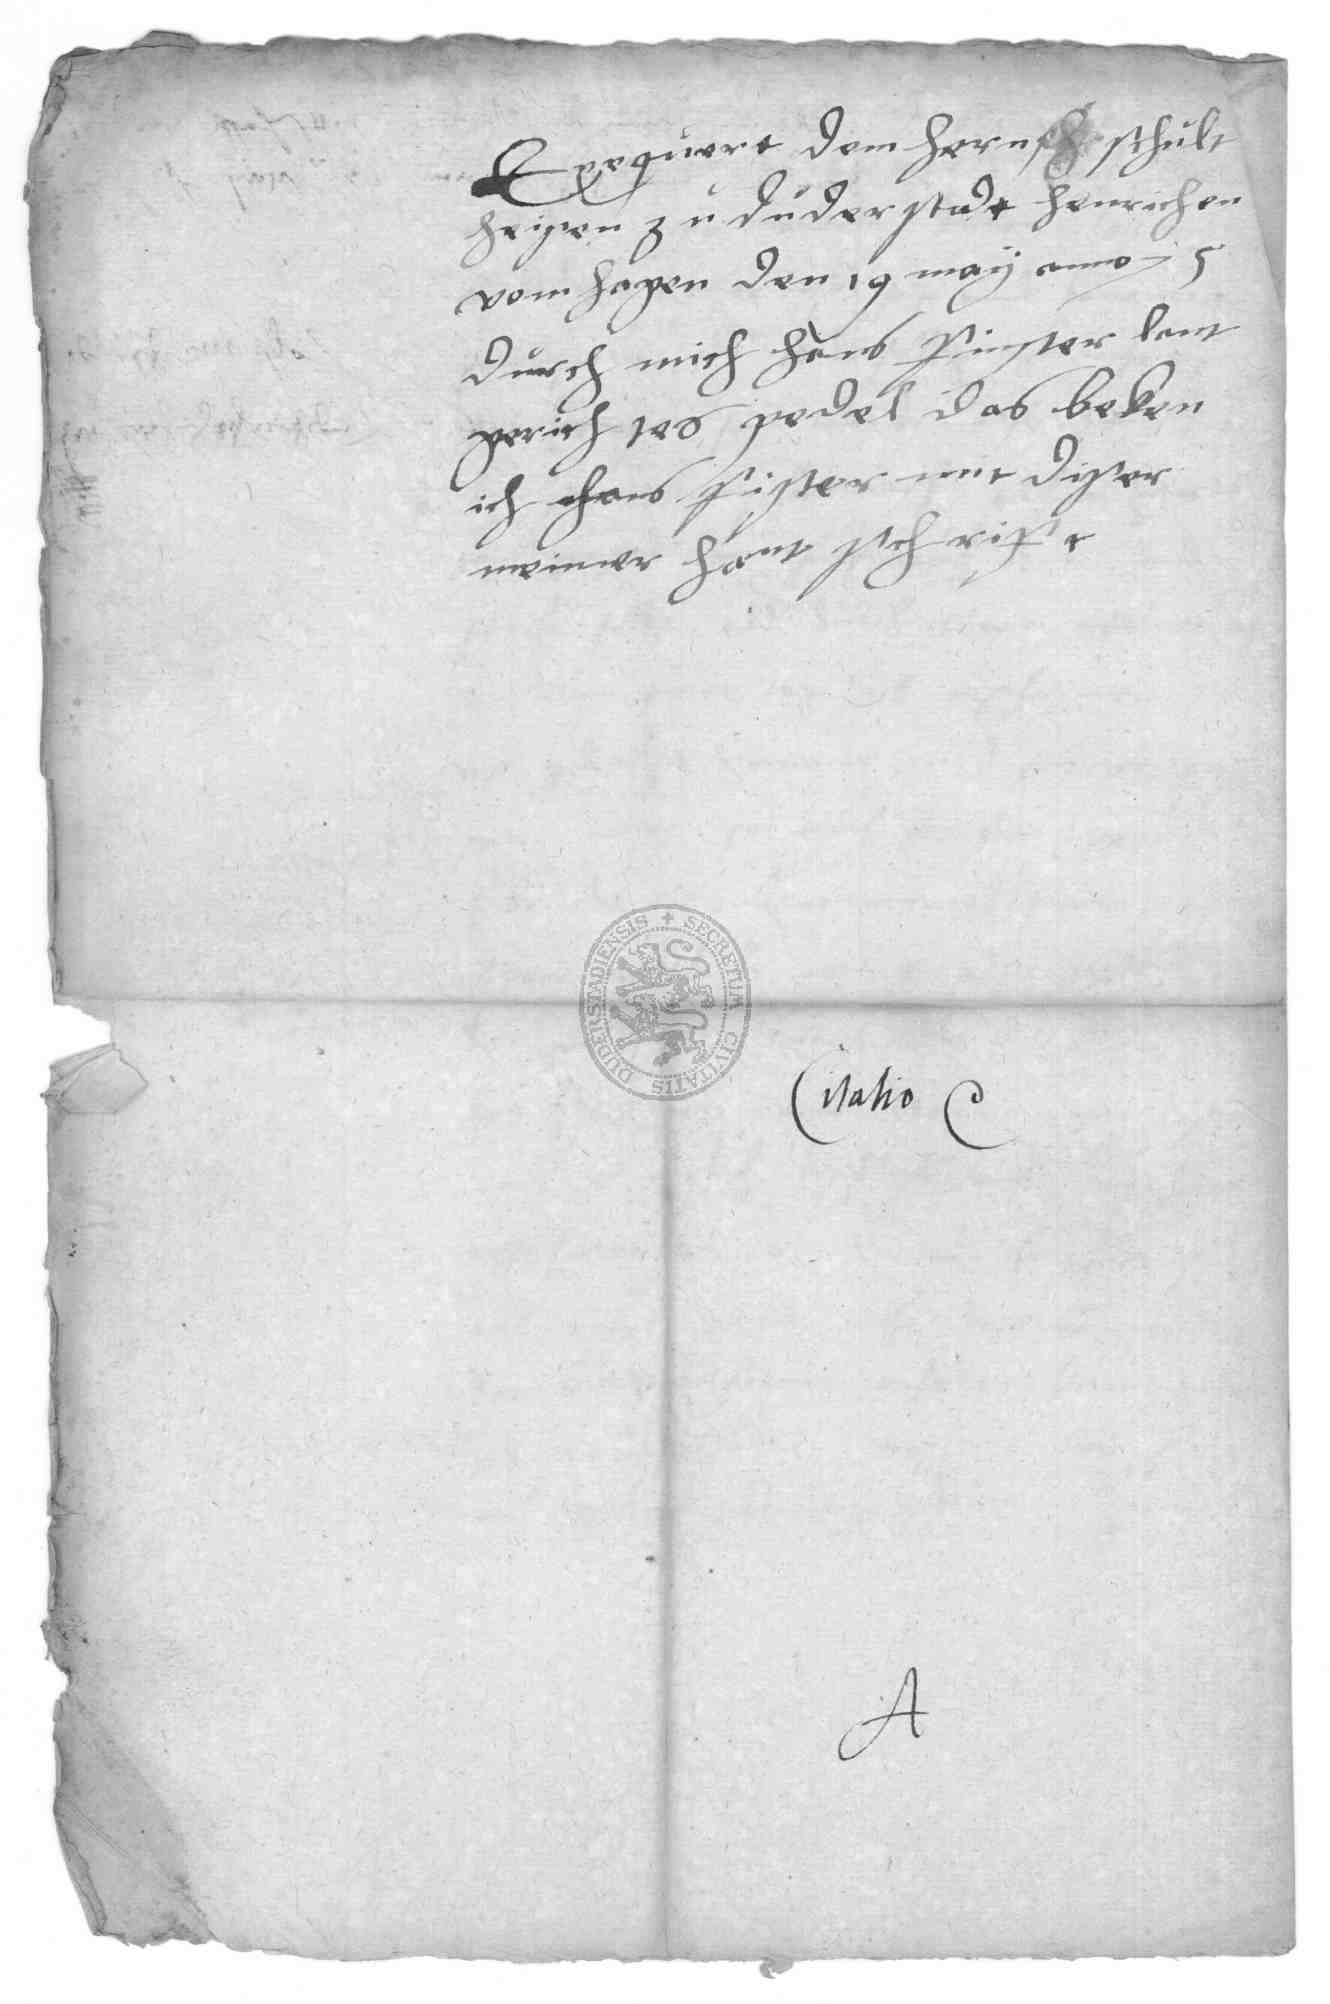 Exequert dem hern schult
heisen zu duderstadt henrichen
vom hagen den 19 may anno 75
durch mich hans finster lant
gerichtes pedel das beken
ich hans finster mit diser
meiner hant schrifft
DUDERSTADIENSIS + SECRETUM CIVITATIS
Citatio C
A